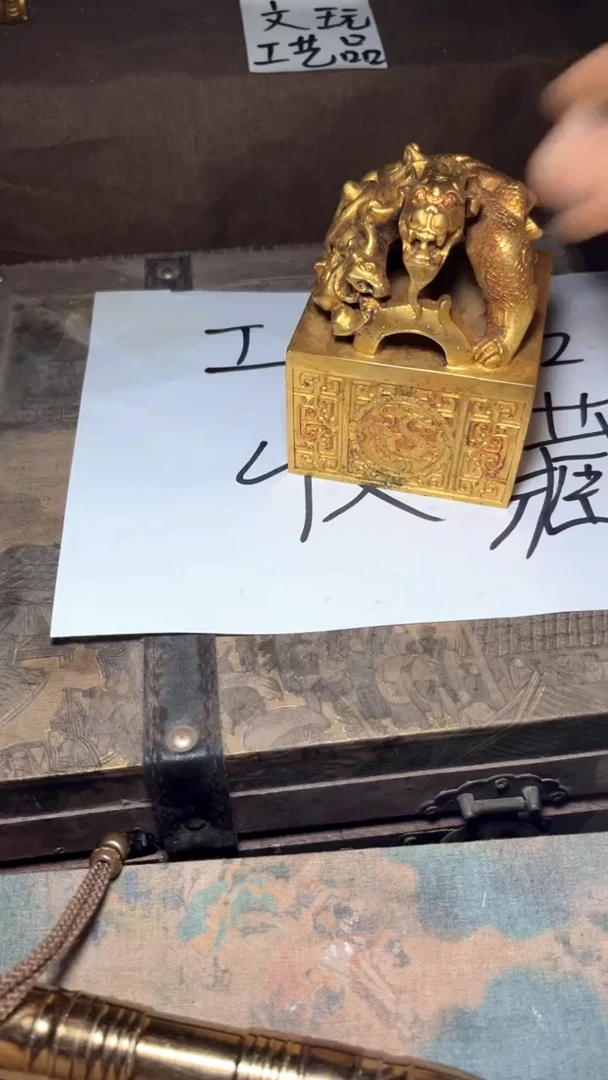 文玩
工艺品
工
收藏